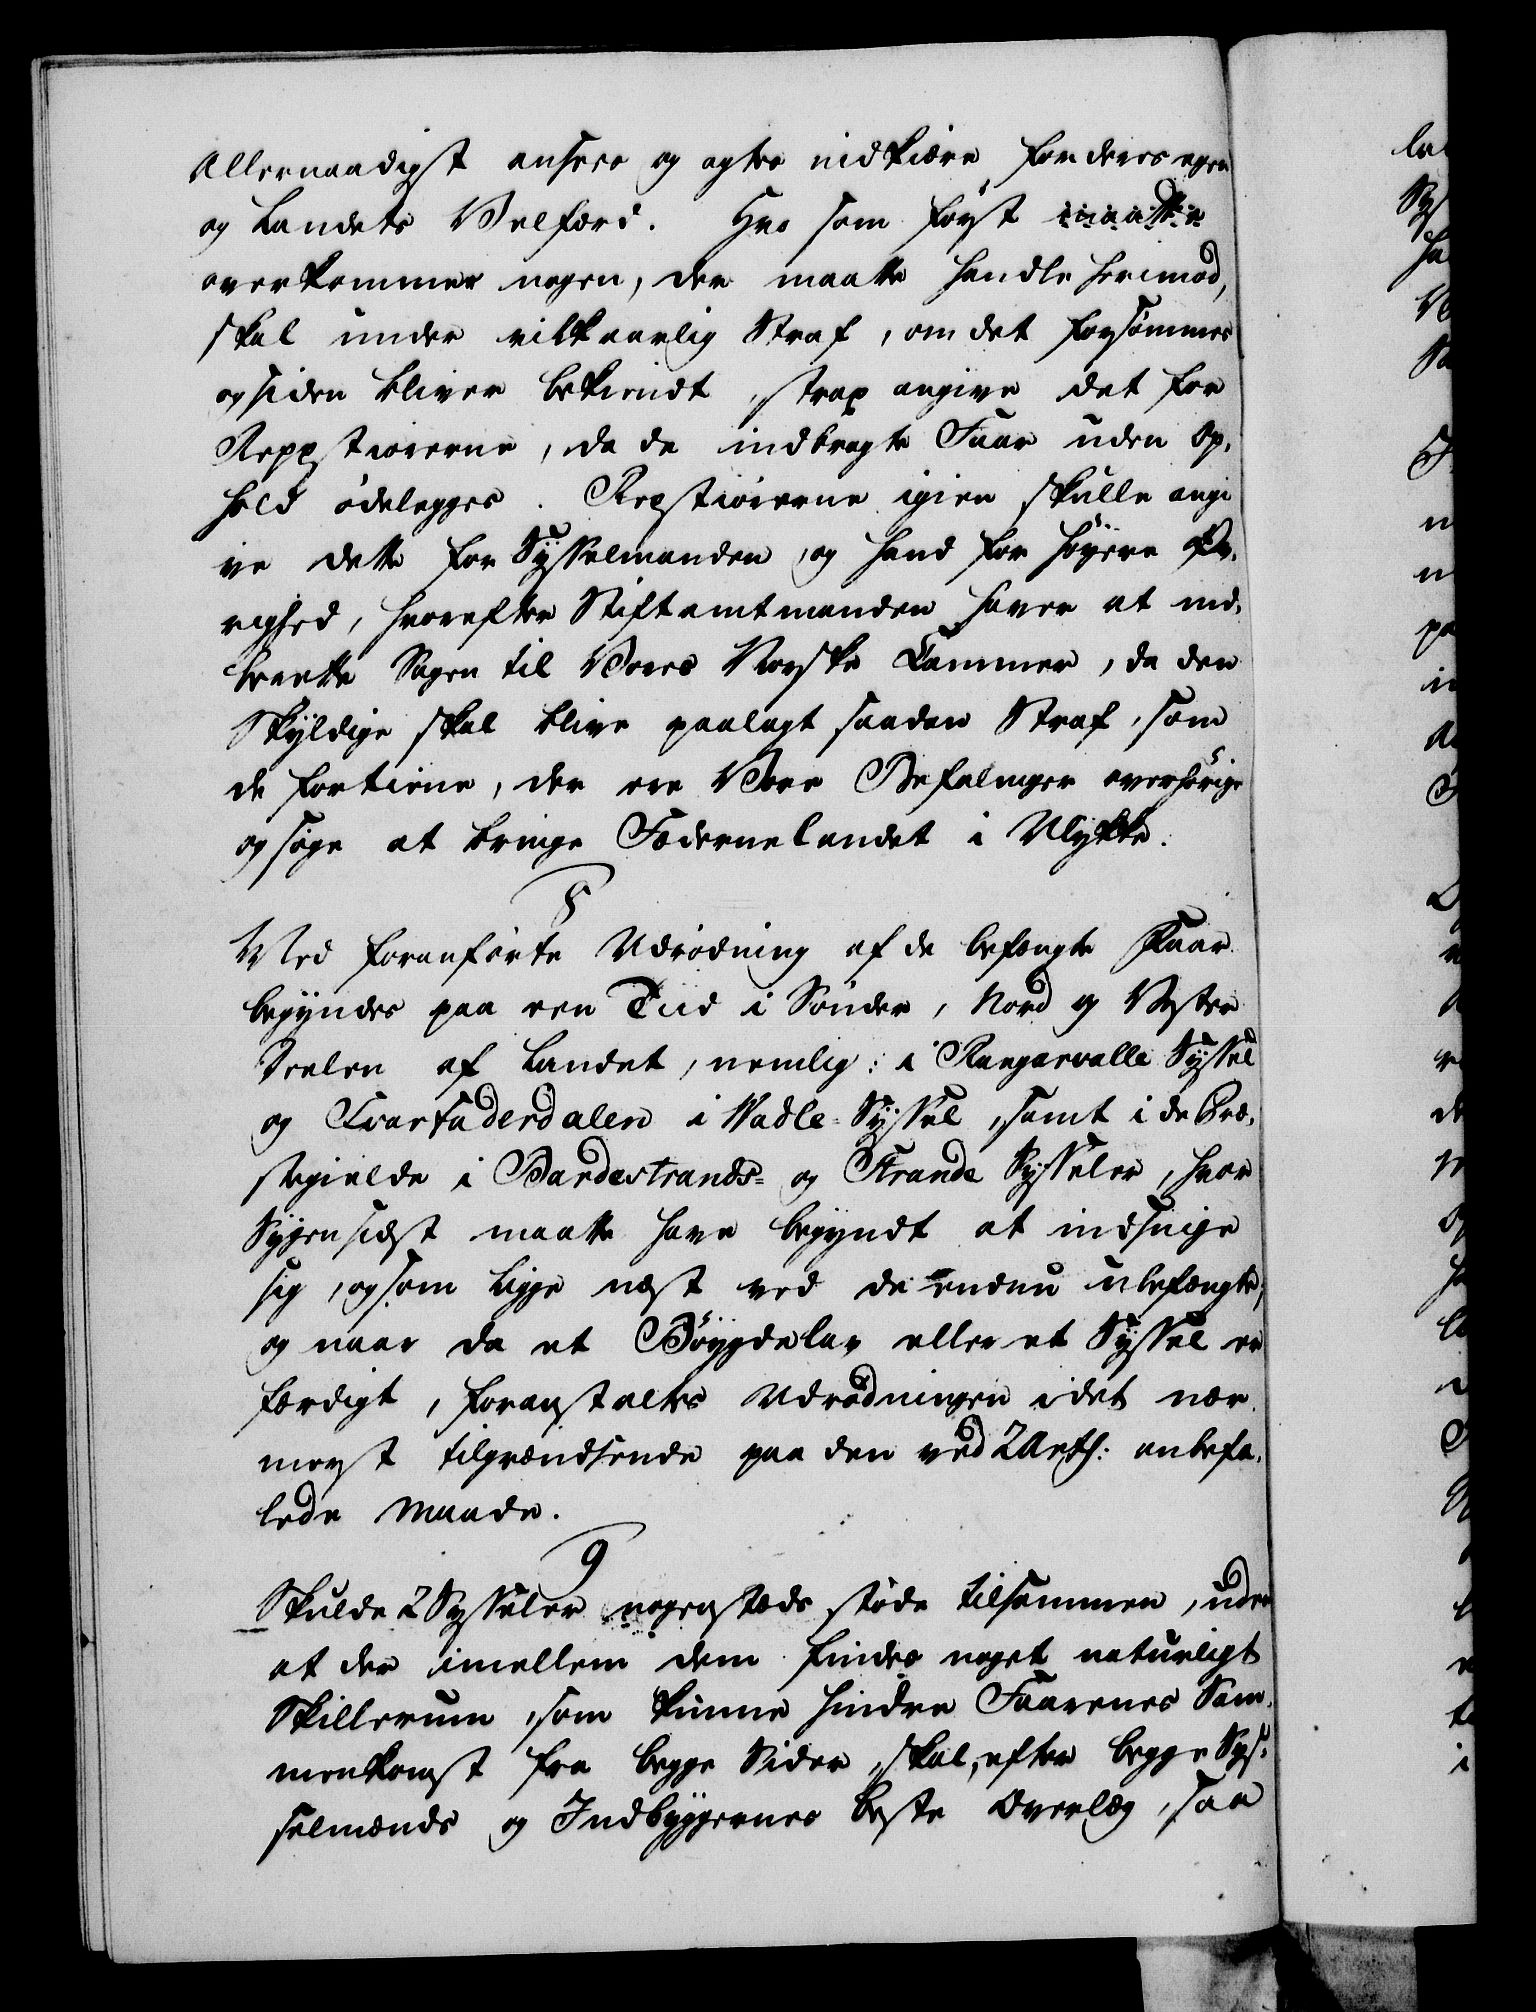 Allernaadigst ansees og agtes nidkiære for deres egen
og Landets Velfærd. Hvo som først maatte
overkommer nogen, der maatte handle herimod,
skal under vilkaarlig Straf, om det forsømmes
og siden bliver bekiendt, strax angive det for
Reppstiorerne, da de indbragte Faar uden Op-
hold ödelegges. Repstiörerne igien skulle angi
ve dette for Sÿsselmanden, og hand for höyere Øv-
righed, hvorefter Stiftamtmanden haver at ind-
berette Sagen til Vores Norske Cammer, da den
Skÿldige skal blive paalagt saadan Straf, som
de fortiene, der ere Vore Befalinger overhörige
og söge at bringe Fædernelandet i Ulykke.
8
Med foranförte Udrödning af de befængte Faar
begyndes paa een Tiid i Sönder, Nord og Vester
Deelen af Landet, nemlig: i Rangarvalle Sÿssel
og i Vadle-Sÿssel, samt i de Præ-
stegielde i Bardestrands- og Strande Sÿsseler, hvor
Sÿgen sidst maatte have begyndt at indsnige
sig, og som ligge næst ved de endnu ubefængte,
og naar da et Böygdelav eller et Sÿssel er
færdigt, foranstaltes Udrödningen i det nær-
mest tilgrændsende paa den ved 2 Art: anbefa-
lede Maade.
9
Skulde 2 Sysseler nogenstæds stöde tilsammen, uden
at der imellem dem findes noget naturligt
Skillerum, som kunne hindre Faarenes Sam-
menkomst fra begge Sider, skal, efter begge Sÿs-
selmænds og Indbyggernes beste Overlæg, saa